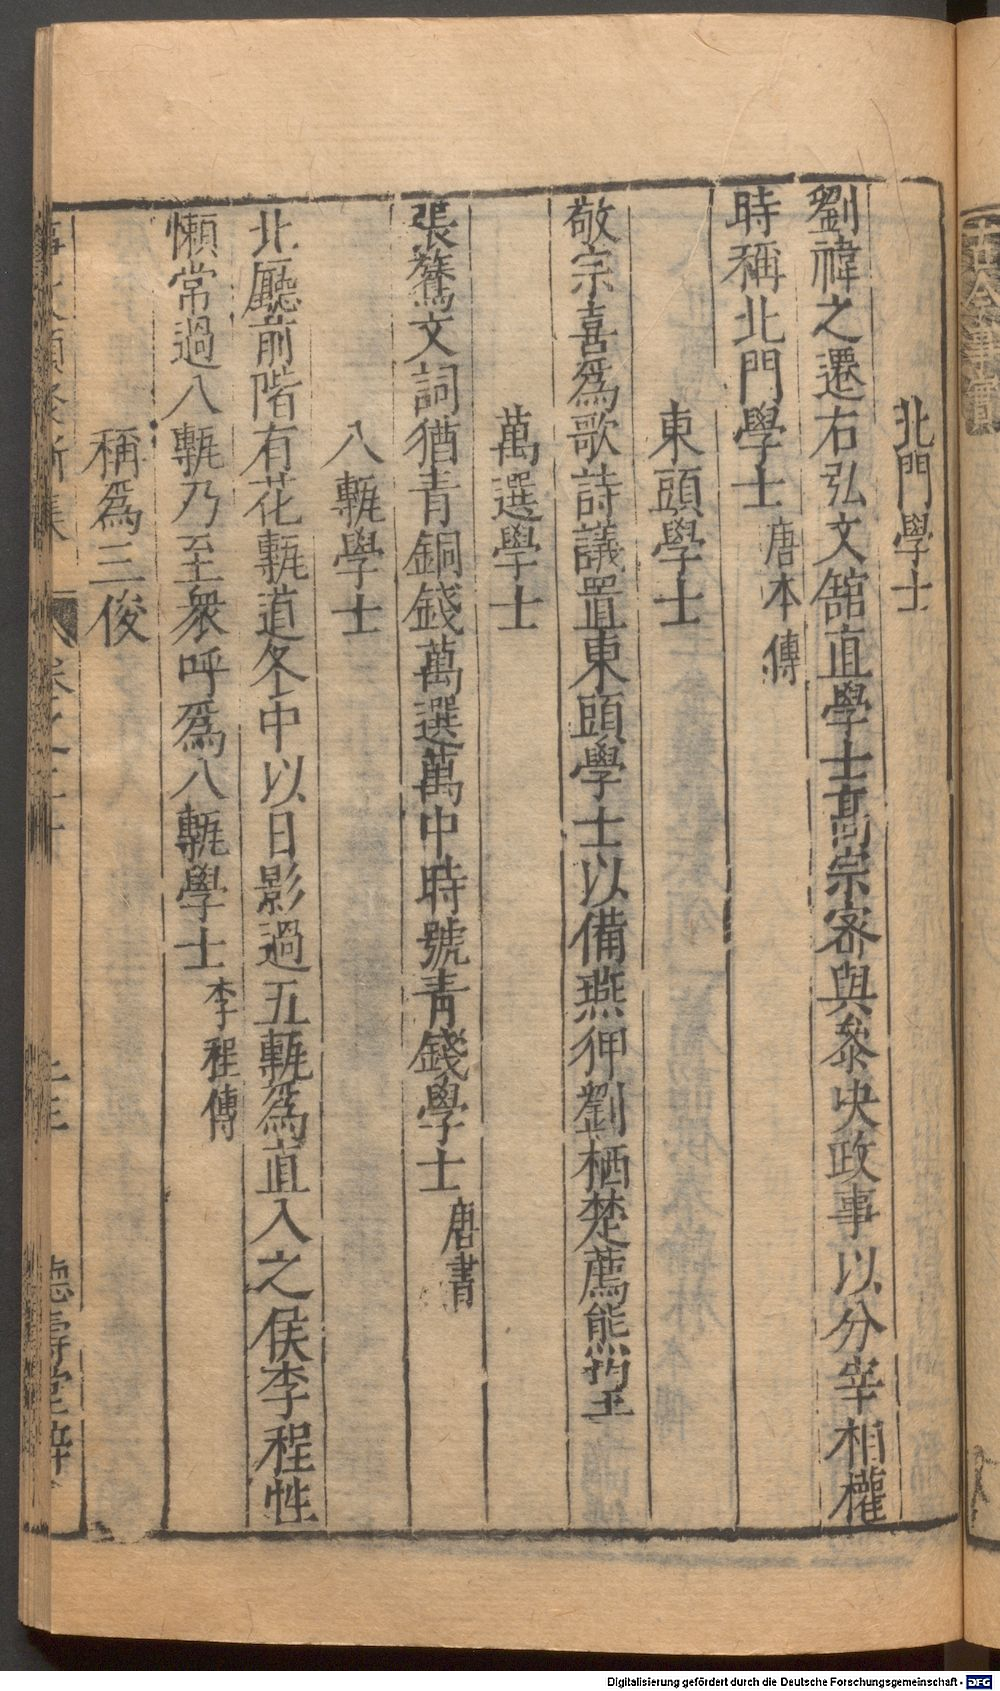 北門學士
劉禕之遷右弘文舘直學士髙宗密與叅决政事以分宰相權
時稱北門學士 唐本傳
東頭學士
敬宗喜爲歌詩議置東頭學士以備燕狎劉栖楚薦熊望
萬選學士
張鷟文詞猶青銅錢萬選萬中時號青錢學士 唐書
八甎學士
北廳前階有花甎道冬中以日影過五甎爲直入之侯李程性
懶常過八甎乃至衆呼爲八甎學士 李程傳
稱爲三俊
Digitalisierung gefördert durch die Deutsche Forschungsgemeinschaft - DFG